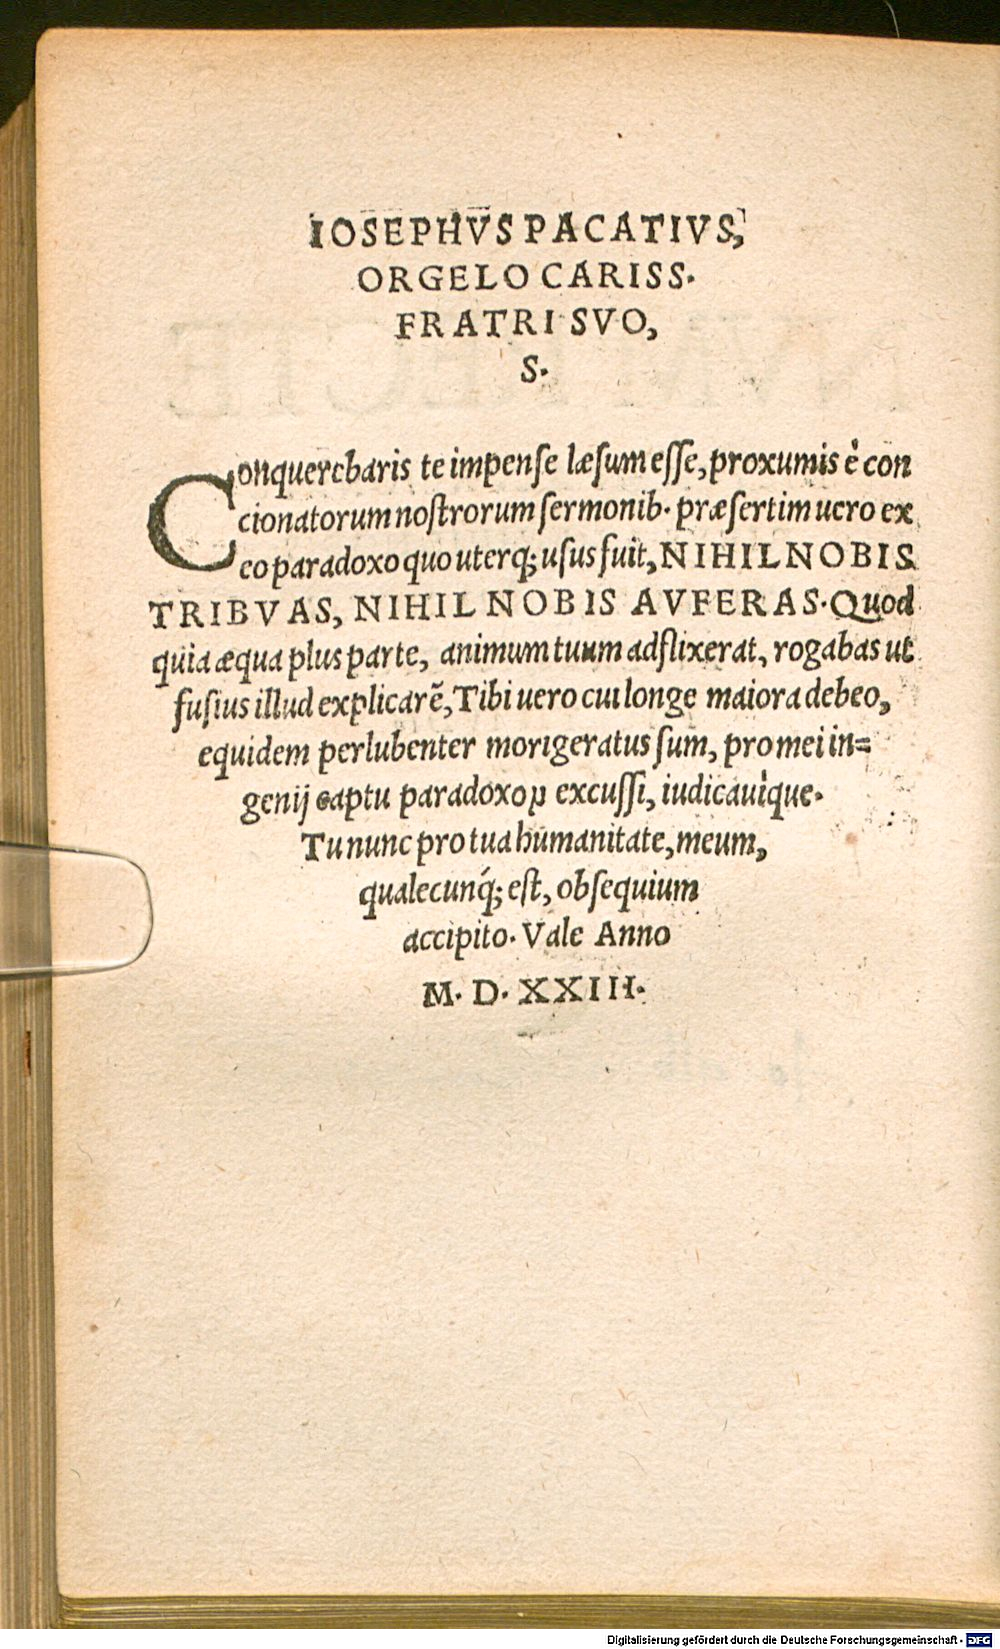 IOSEPHVS PACATIVS,
ORGELO CARISS.
FRATRI SVO,
S.
Conquerebaris te impense læsum esse, proxumis è con
cionatorum nostrorum sermonib. præsertim uero ex
eo paradoxo quo uterq; usus fuit, NIHIL NOBIS
TRIBVAS, NIHIL NOBIS AVFERAS. Quod
quia æqua plus parte, animum tuum adflixerat, rogabas ut
fusius illud explicarẽ, Tibi uero cui longe maiora debeo,
equidem perlubenter morigeratus sum, pro mei in=
genij captu paradoxoꝝ excussi, iudicauìque.
Tu nunc pro tua humanitate, meum,
qualecunq́; est, obsequium
accipito. Vale Anno
M. D. XXIII.
Digitalisierung gefördert durch die Deutsche Forschungsgemeinschaft - DFG